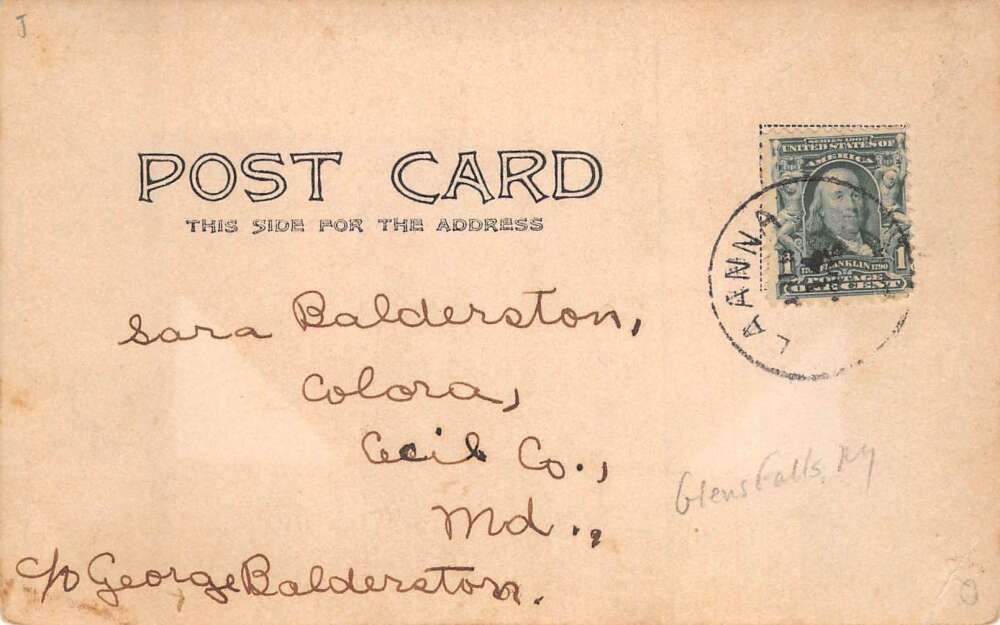 J
POST CARD
THIS SIDE FOR THE ADDRESS
SERIES 1902
UNITED STATES OF
AMERICA
1 FRANKLIN 1790 1
POSTAGE
ONE CENT
LAANNA
Sara Balderston,
Colora,
Cecil Co.,
Md.,
c/o George Balderston.
Glens Falls, NY